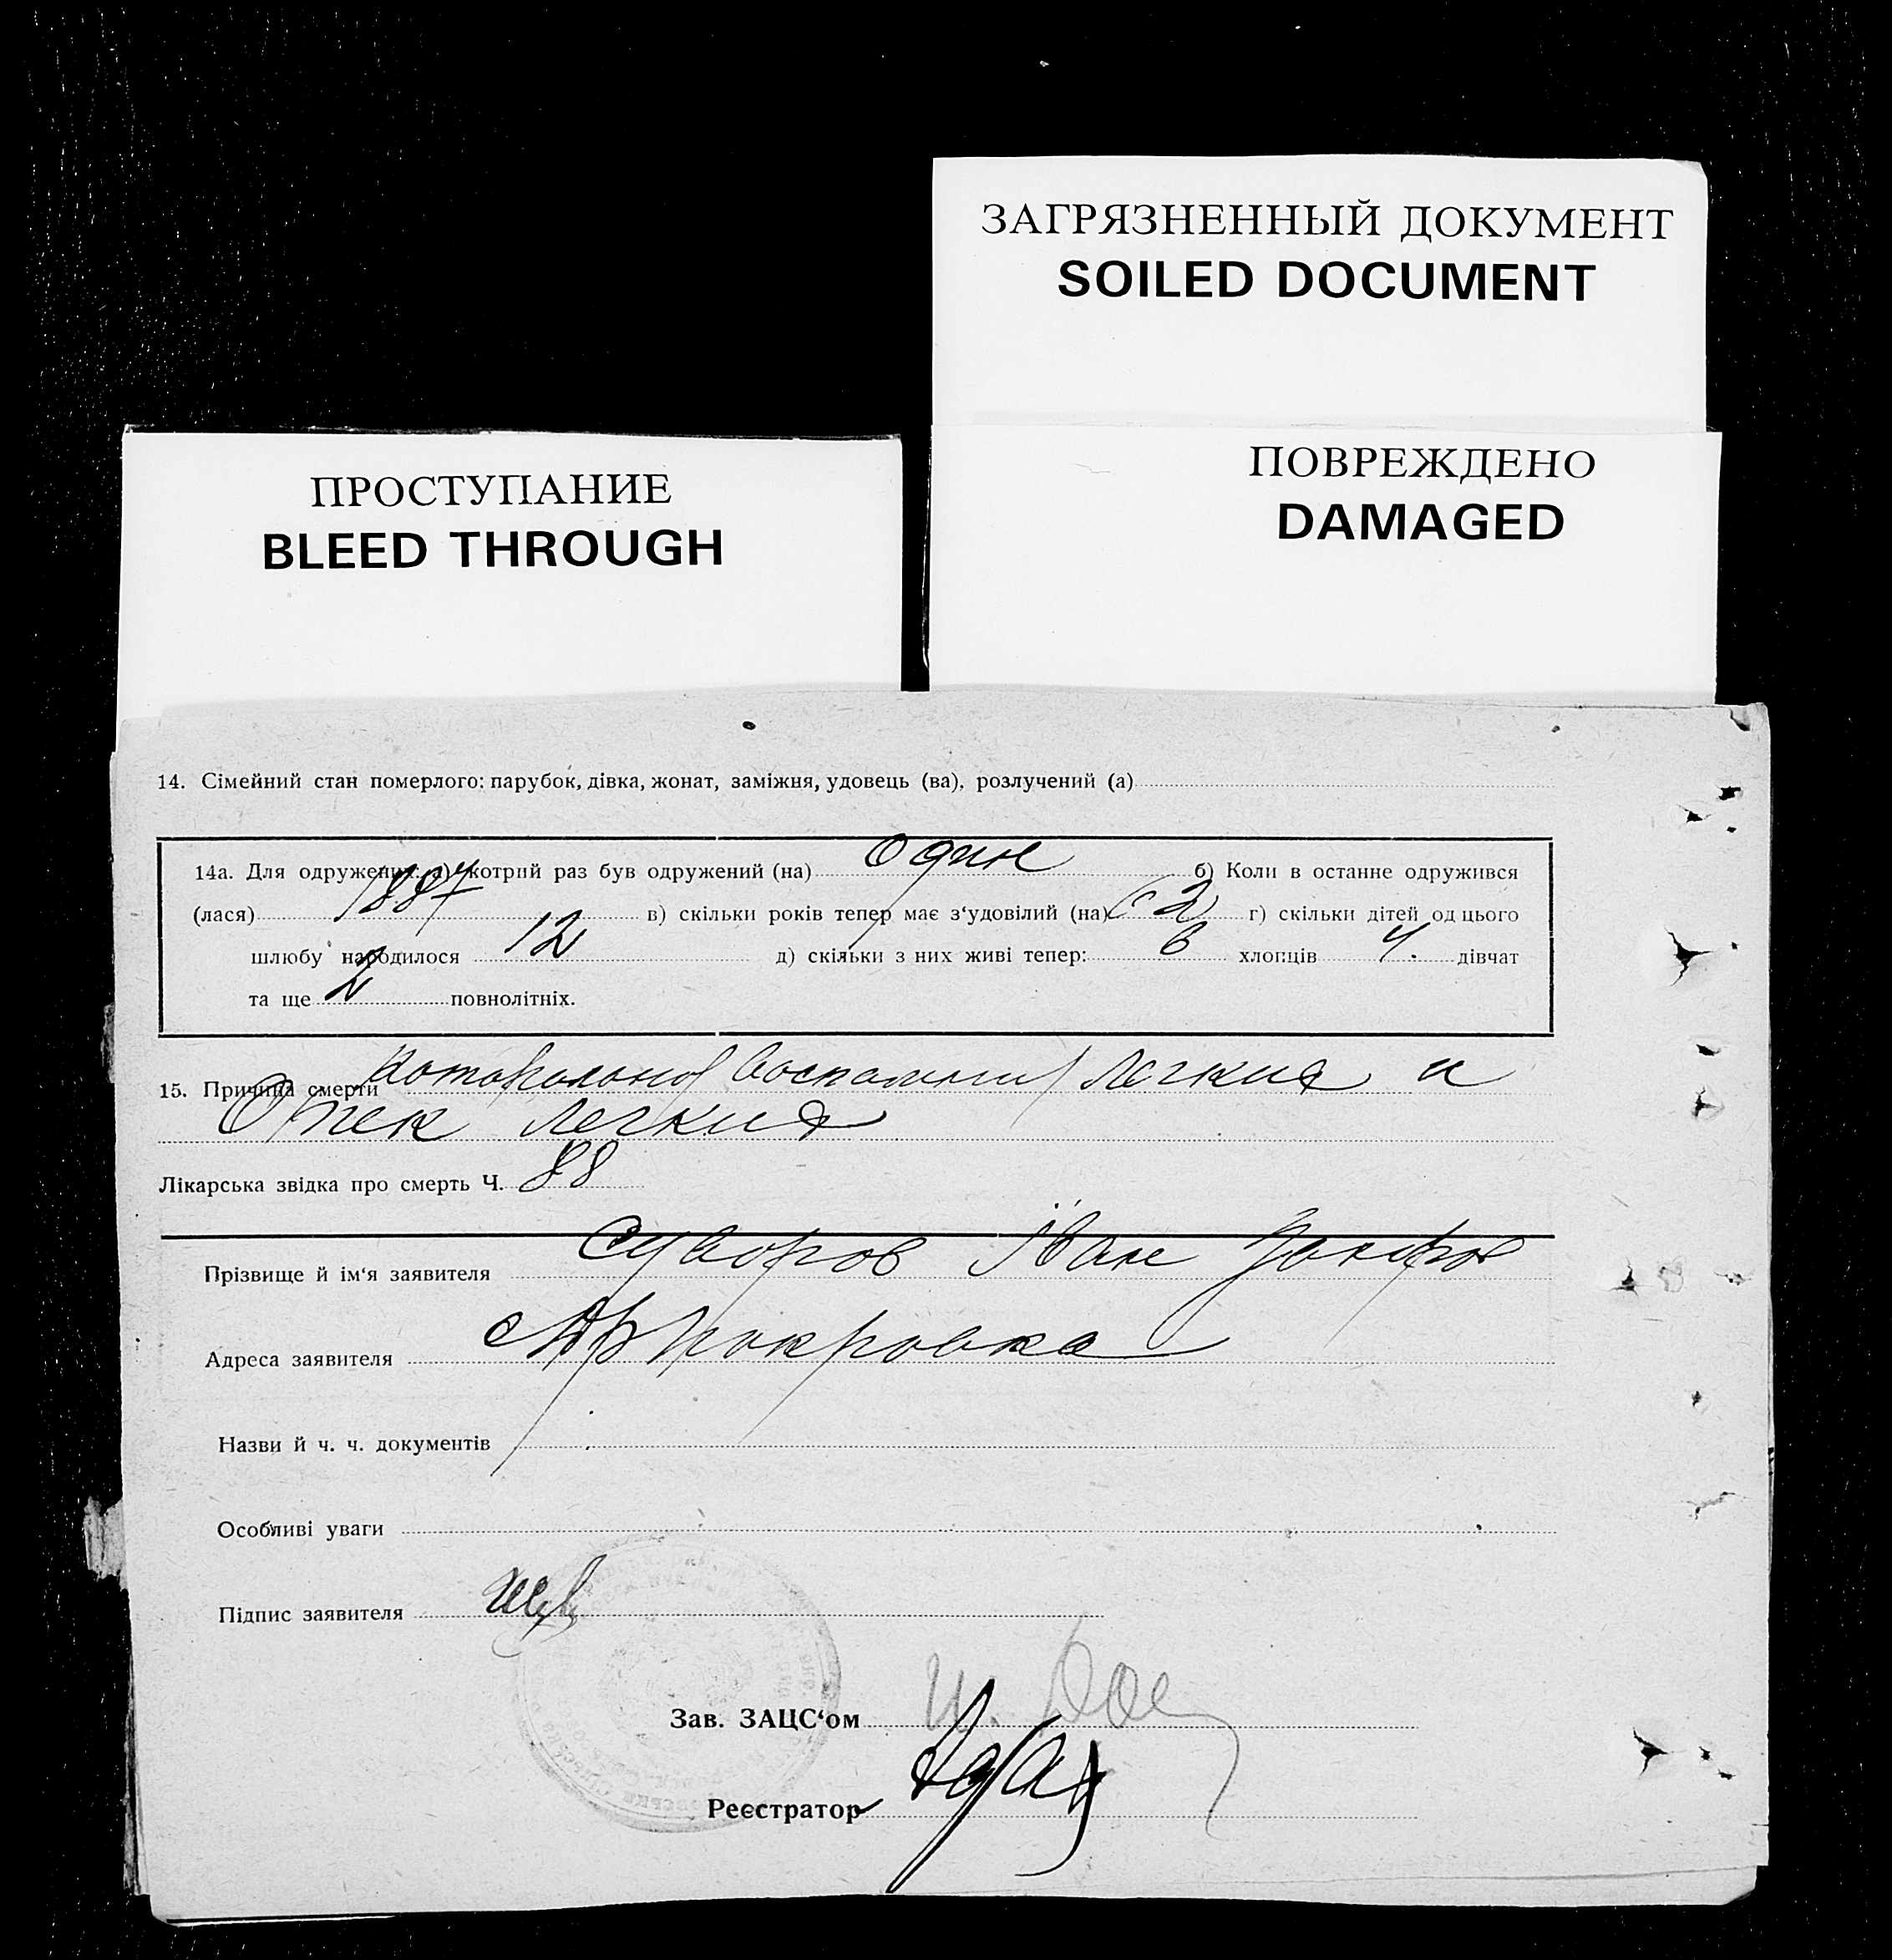 ЗАГРЯЗНЕННЫЙ ДОКУМЕНТ
SOILED DOCUMENT
ПРОСТУПАНИЕ
BLEED THROUGH
ПОВРЕЖДЕНО
DAMAGED
14. Сімейний стан померлого: парубок, дівка, жонат, заміжня, удовець (ва), розлучений (а)
14а. Для одружених: а) котрий раз був одружений (на) Один б) Коли в останне одружився
(лася) 1887 в) скільки років тепер має з‘удовілий (на) 62 г) скільки дітей од цього
шлюбу народилося 12 д) скільки з них живі тепер: 6 хлопців 4. дівчат
та ще 2 повнолітніх.
15. Причина смерти воспаление легких и
Отек легких
Лікарська звідка про смерть Ч. 88
Прізвище й ім‘я заявителя Суворов Іван
Адреса заявителя Покровка
Назви й ч. ч. документів
Особливі уваги
Підпис заявителя
Зав. ЗАЦС‘ом
Реєстратор